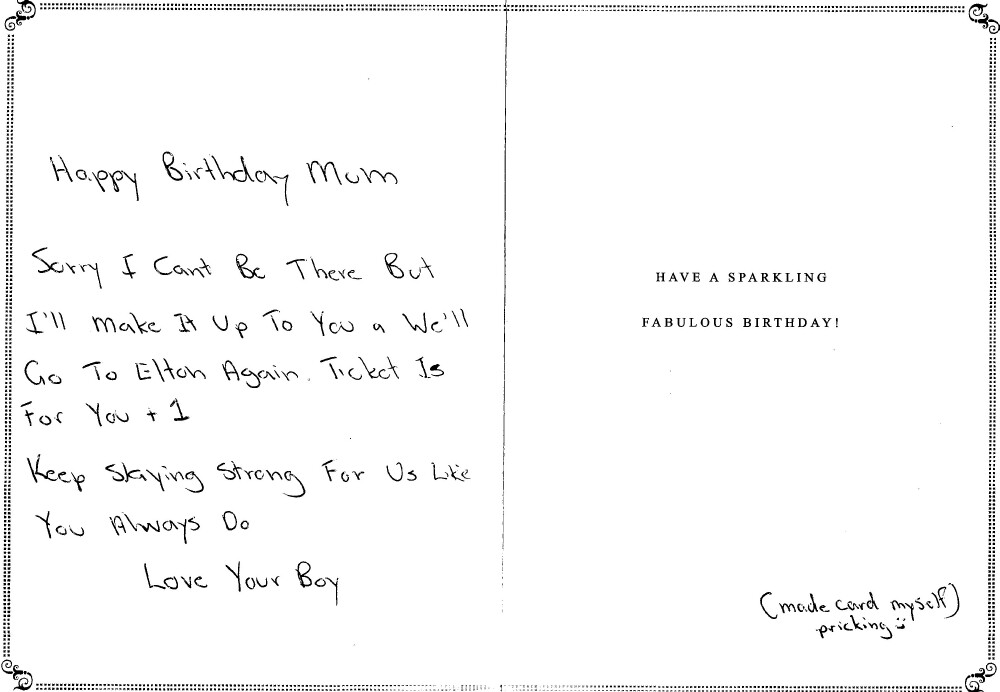 Happy Birthday Mum
Sorry I Cant Be There But
I'll Make It Up To You a We'll
Go To Elton Again. Ticket Is
For You + 1
Keep Staying Strong For Us Like
You Always Do
Love Your Boy
HAVE A SPARKLING
FABULOUS BIRTHDAY!
(made card myself)
pricking